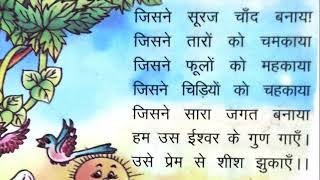 जिसने सूरज चाँद बनाया!
जिसने तारों को चमकाया
जिसने फूलों को महकाया
जिसने चिड़ियों को चहकाया
जिसने सारा जगत बनाया
हम उस ईश्वर के गुण गाएँ।
उसे प्रेम से शीश झुकाएँ।।